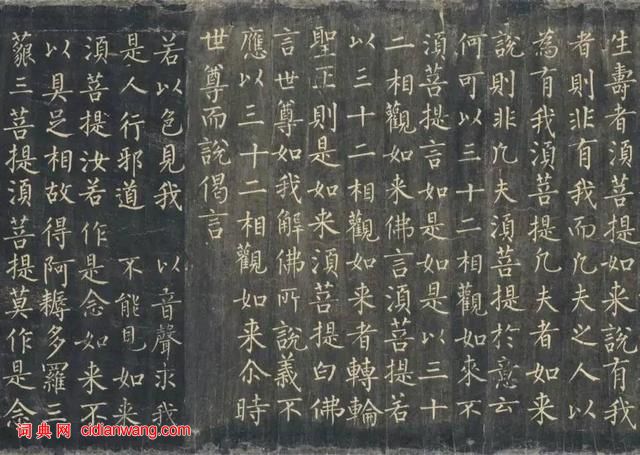 生壽者須菩提如来說有我
者則非有我而凡夫之人以
為有我須菩提凡夫者如来
說則非凡夫須菩提於意云
何可以三十二相觀如来不
須菩提言如是如是以三十
二相觀如来佛言須菩提若
以三十二相觀如来者轉輪
聖王則是如来須菩提白佛
言世尊如我解佛所說義不
應以三十二相觀如来尒時
世尊而說偈言
若以色見我 以音聲求我
是人行邪道 不能見如来
須菩提汝若作是念如来不
以具足相故得阿耨多羅三
藐三菩提須菩提莫作是念
词典网 cidianwang.com